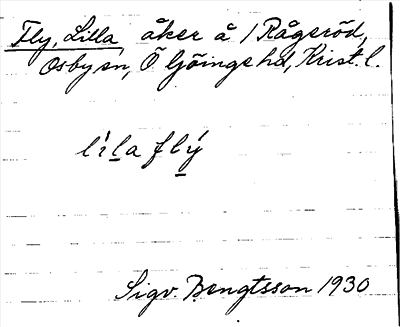 Fly, Lilla åker å 1 Rågeröd,
Osby sn, Ö Göinge hd, Krist. l.
lìla flý
Sigv. Bengtsson 1930